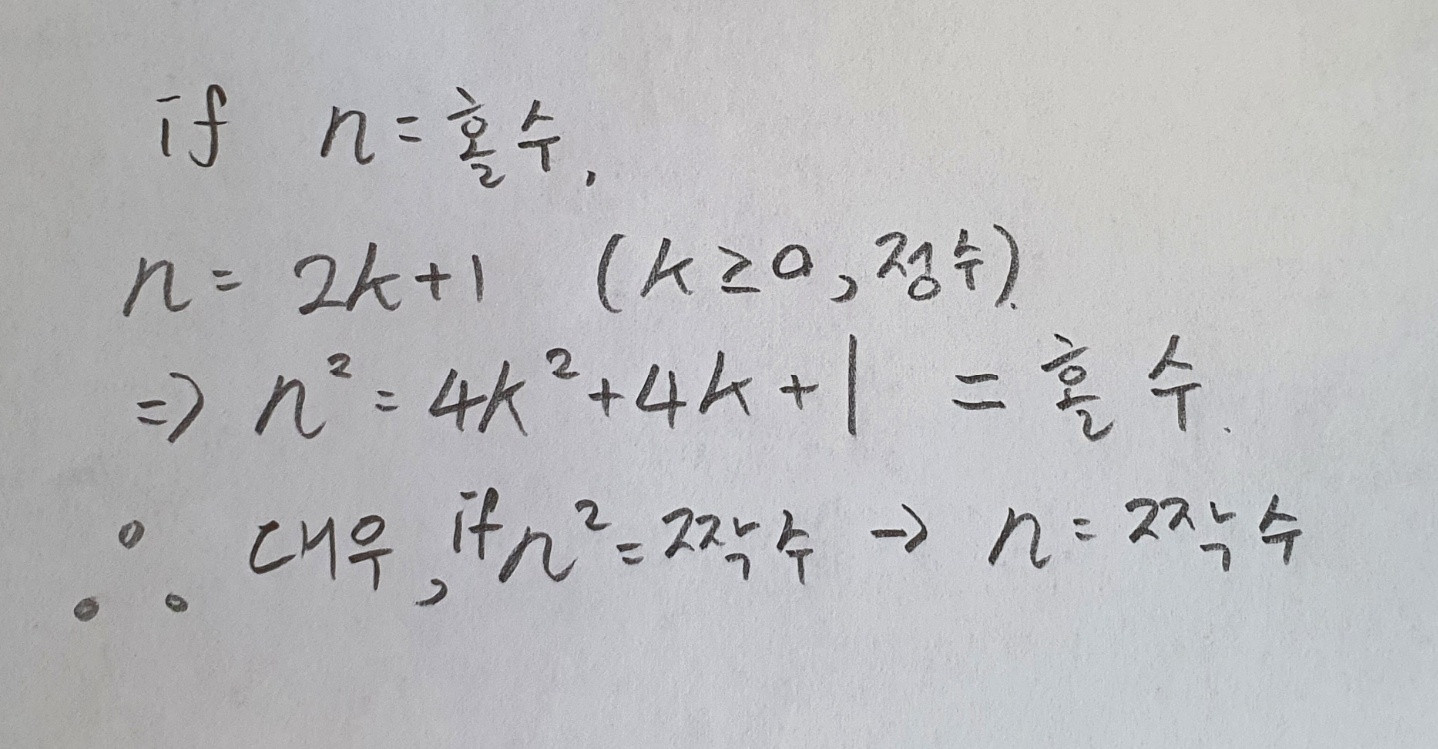 if n=홀수,
n= 2k+1 (k≥0, 정수).
⇒ n²=4k²+4k+1 = 홀수.
∴ 대우, if n²=짝수 → n=짝수